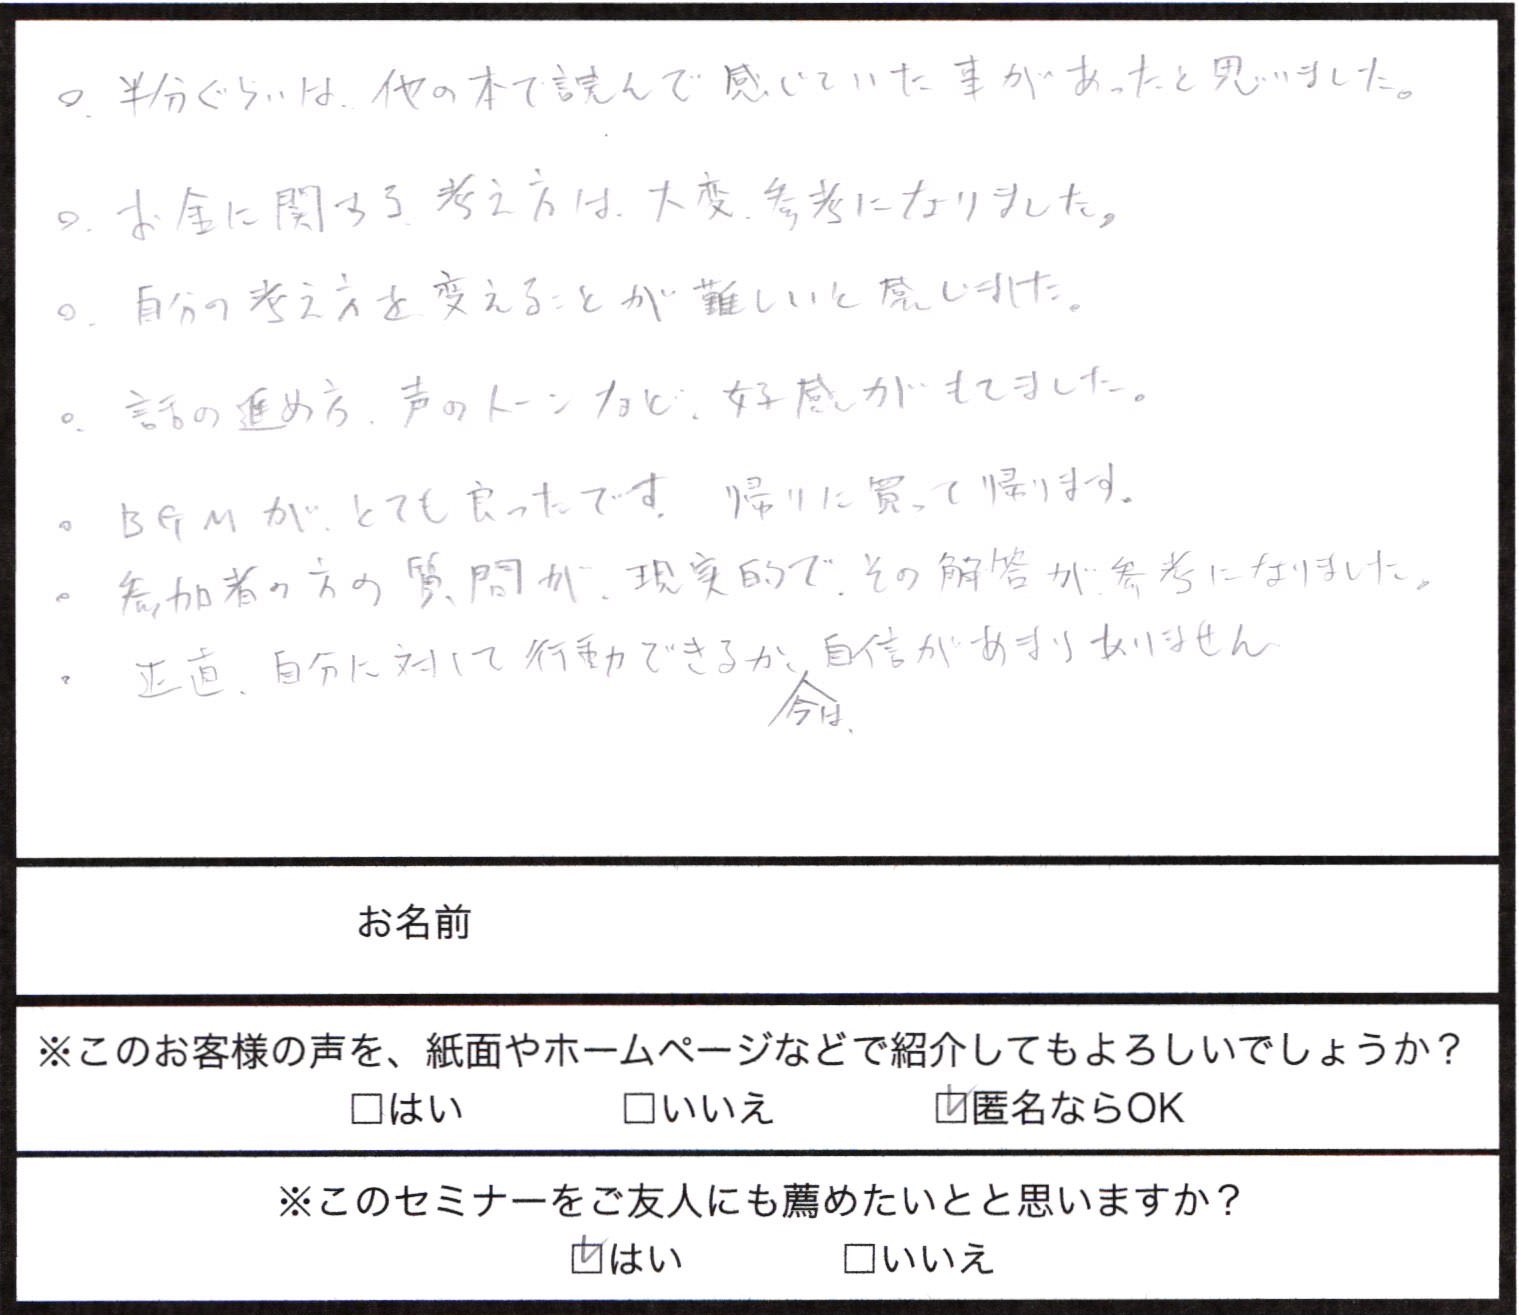 ○. 半分ぐらいは、他の本で読んで感じていた事があったと思いました。
○. お金に関する、考え方は、大変、参考になりました。
○. 自分の考え方を変えることが難しいと感じました。
○. 話の進め方、声のトーンなど、好感がもてました。
○ BGMが、とても良ったです。 帰りに買って帰ります。
○ 参加者の方の質問が、現実的で、その解答が、参考になりました。
・ 正直、自分に対して行動できるか、自信があまりありません
今は、
お名前
※このお客様の声を、紙面やホームページなどで紹介してもよろしいでしょうか？
□はい □いいえ ☑匿名ならOK
※このセミナーをご友人にも薦めたいとと思いますか？
☑はい □いいえ